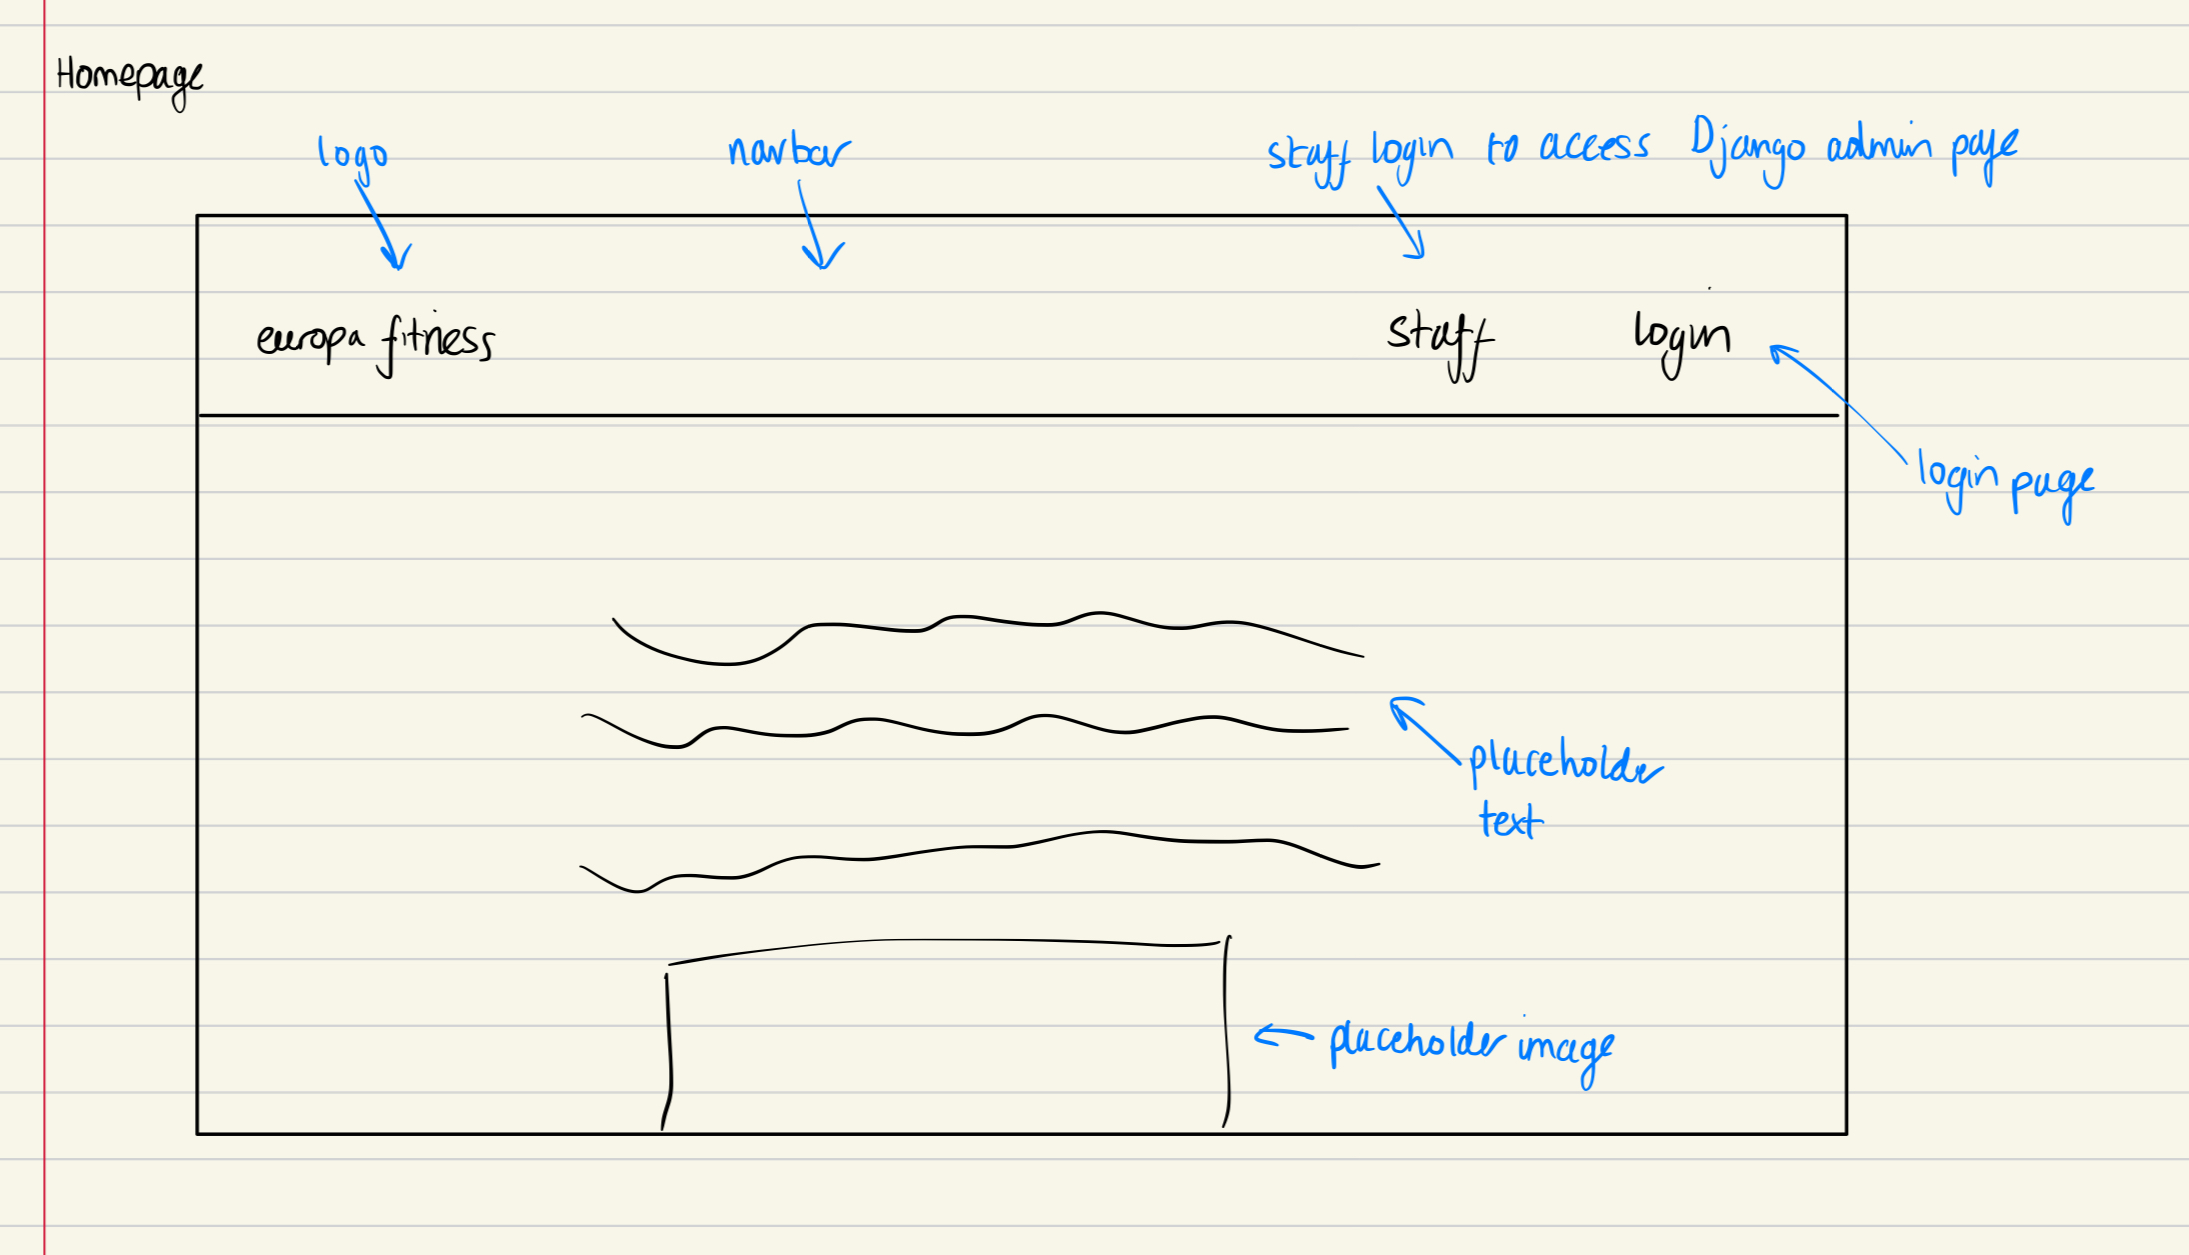 Homepage
logo
navbar
staff login to access Django admin page
europa fitness
staff
login
login page
placeholder
text
placeholder image